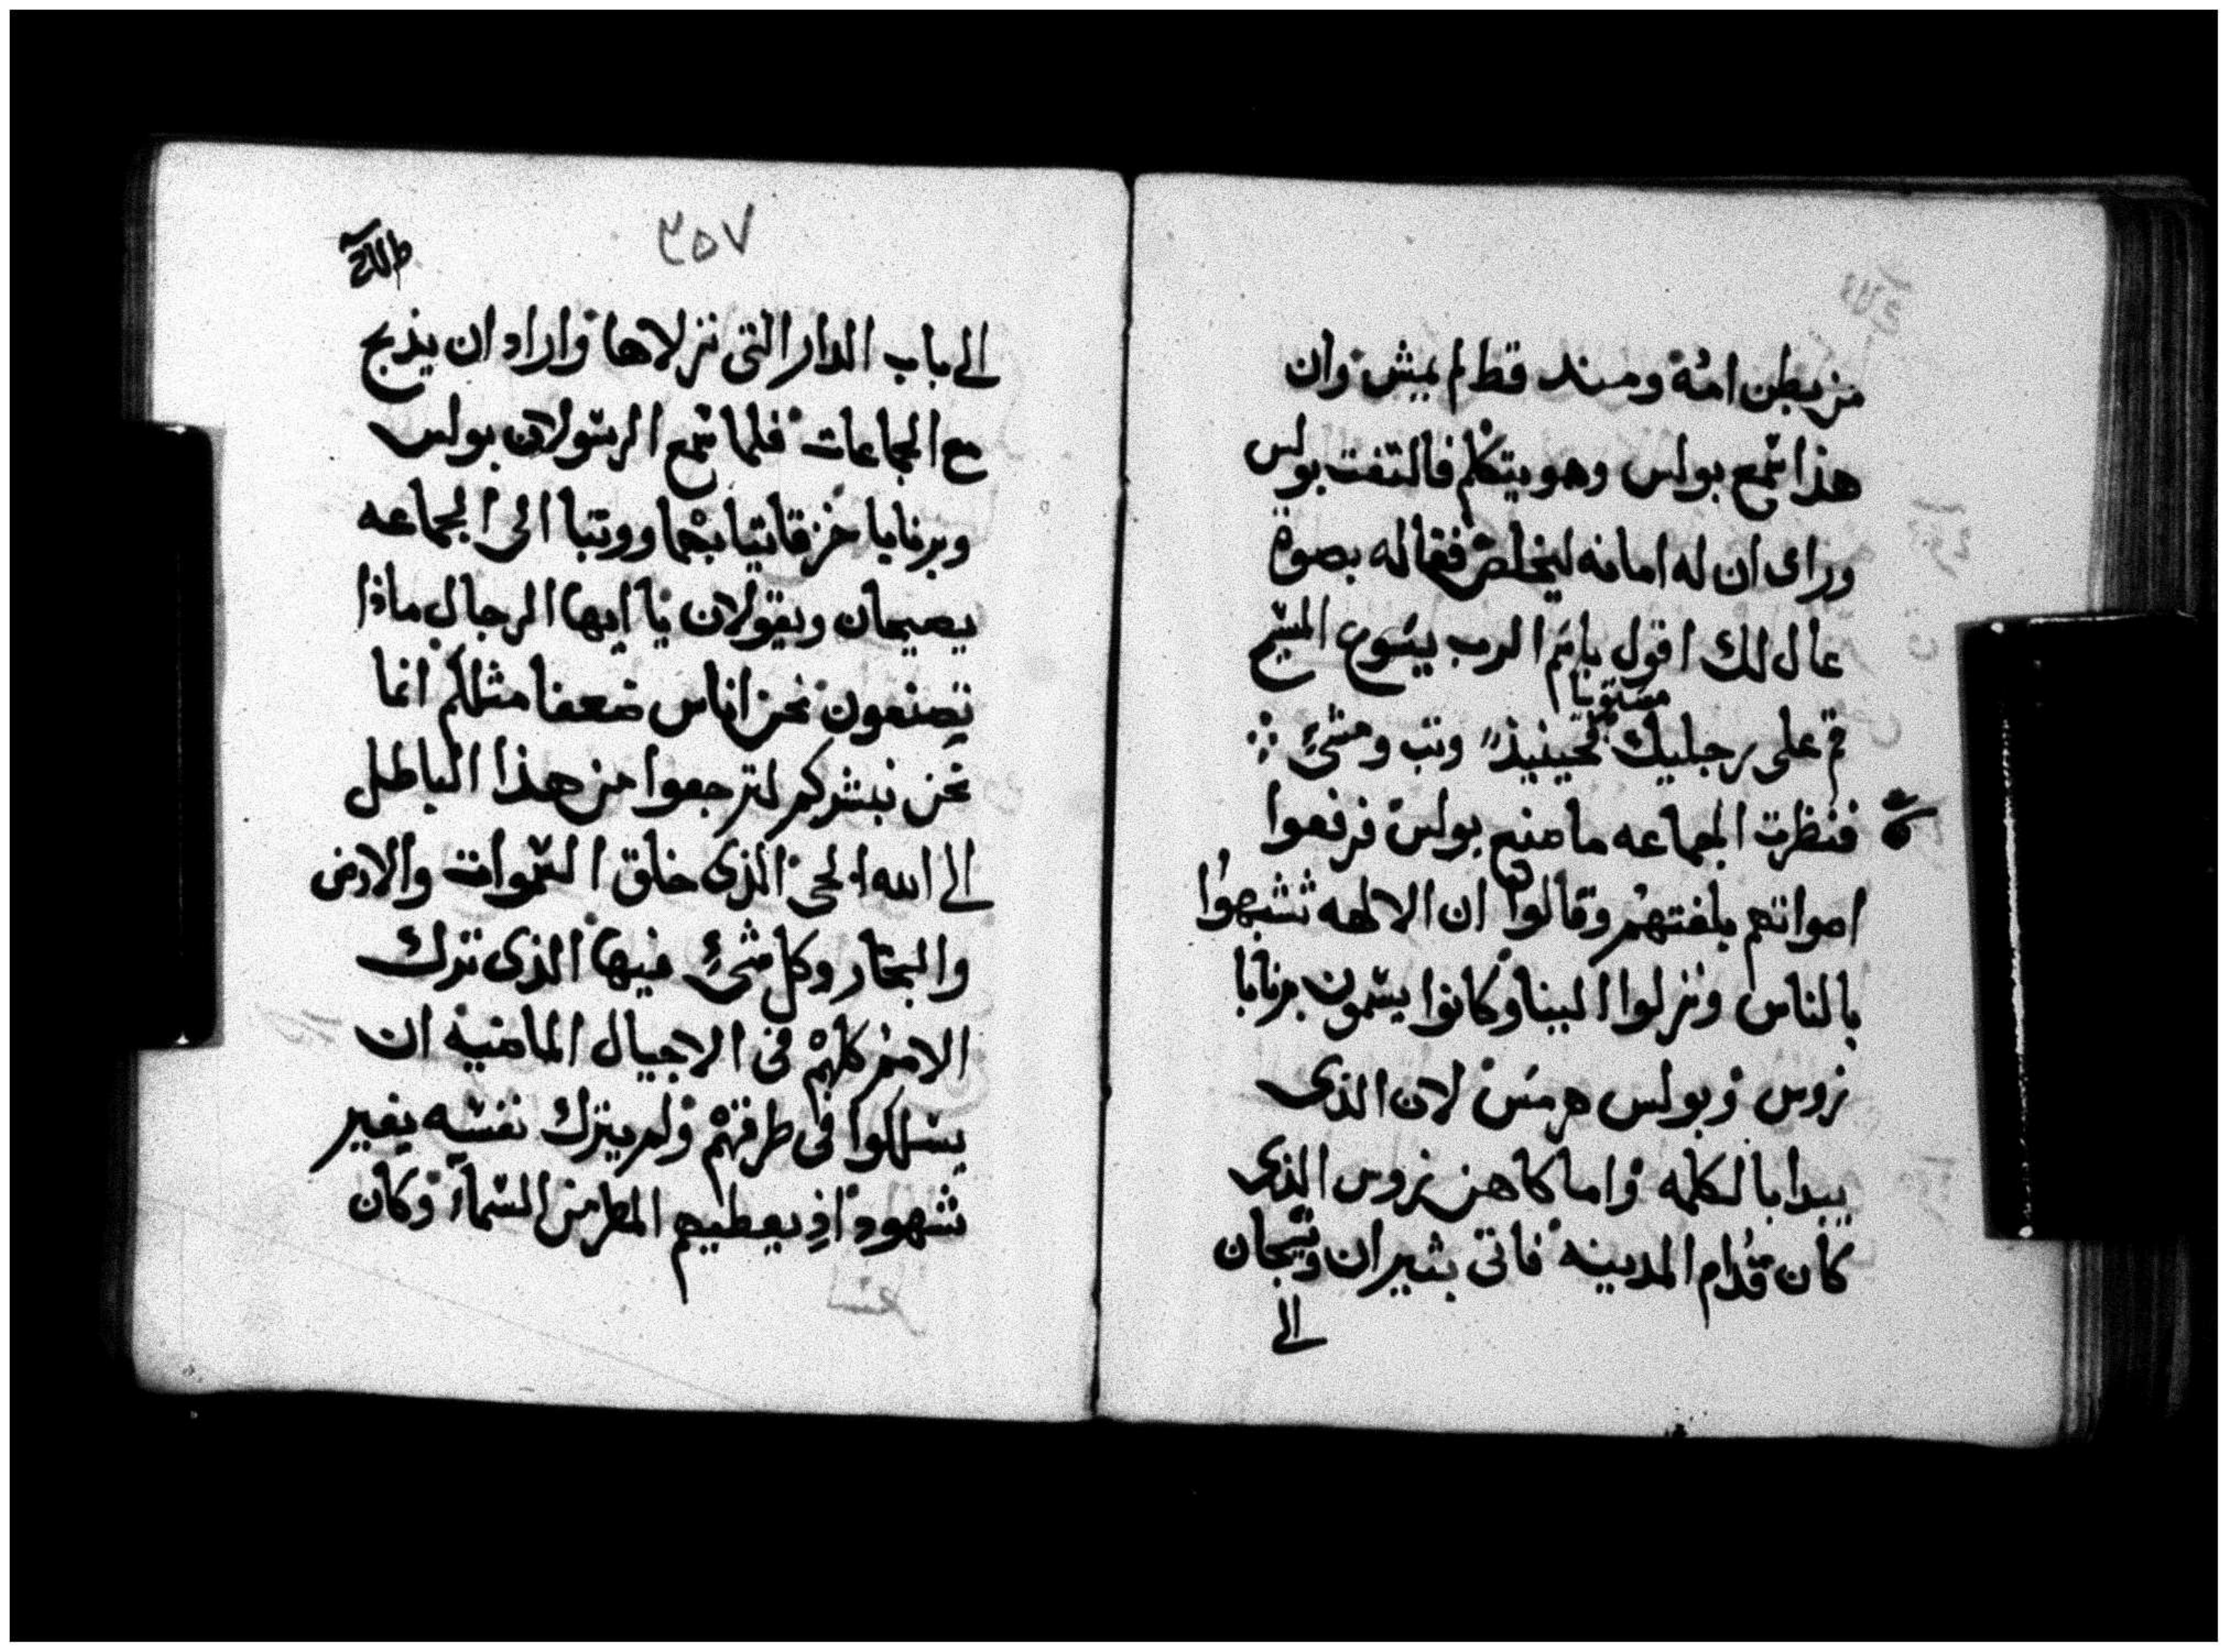 من بطن امه ومند قط لم يمش وان
هذا سمع بولس وهو يتكلم فالتفت بولس
وراى ان له امانه ليخلص فقاله بصوة
عال لك اقول باسم الرب يسوع المسيح
قم على رجليك مستويا فحينيذ وتب ومشئ
فنظرت الجماعه ما صنع بولس فرفعوا
اصواتهم بلغتهم وقالوا ان الالهه تشبهوا
بالناس ونزلوا الينا وكانوا يسمون برنابا
زوس وبولس هرمس لان الذى
يبدا بالكلمه واما كاهن زوس الذى
كان قدام المدينه فاتى بثيران وتيجان
الى
٣٥٧
الى باب الدار التى نزلاها واراد ان يذبح
مع الجماعات فلما سمع الرسولان بولس
وبرنابا خزقا ثيابهما ووتبا الى الجماعه
يصيحان ويقولان يا ايها الرجال ماذا
تصنعون نحن اناس ضعفا مثلكم انما
نحن نبشركم لترجعوا من هذا الباطل
الى الله الحى الذى خلق السموات والارض
والبحار وكل شئ فيها الذى ترك
الامم كلهم فى الاجيال الماضيه ان
يسلكوا فى طرقهم ولم يترك نفسه بغير
شهود اذ يعطيهم المطر من السماء وكان